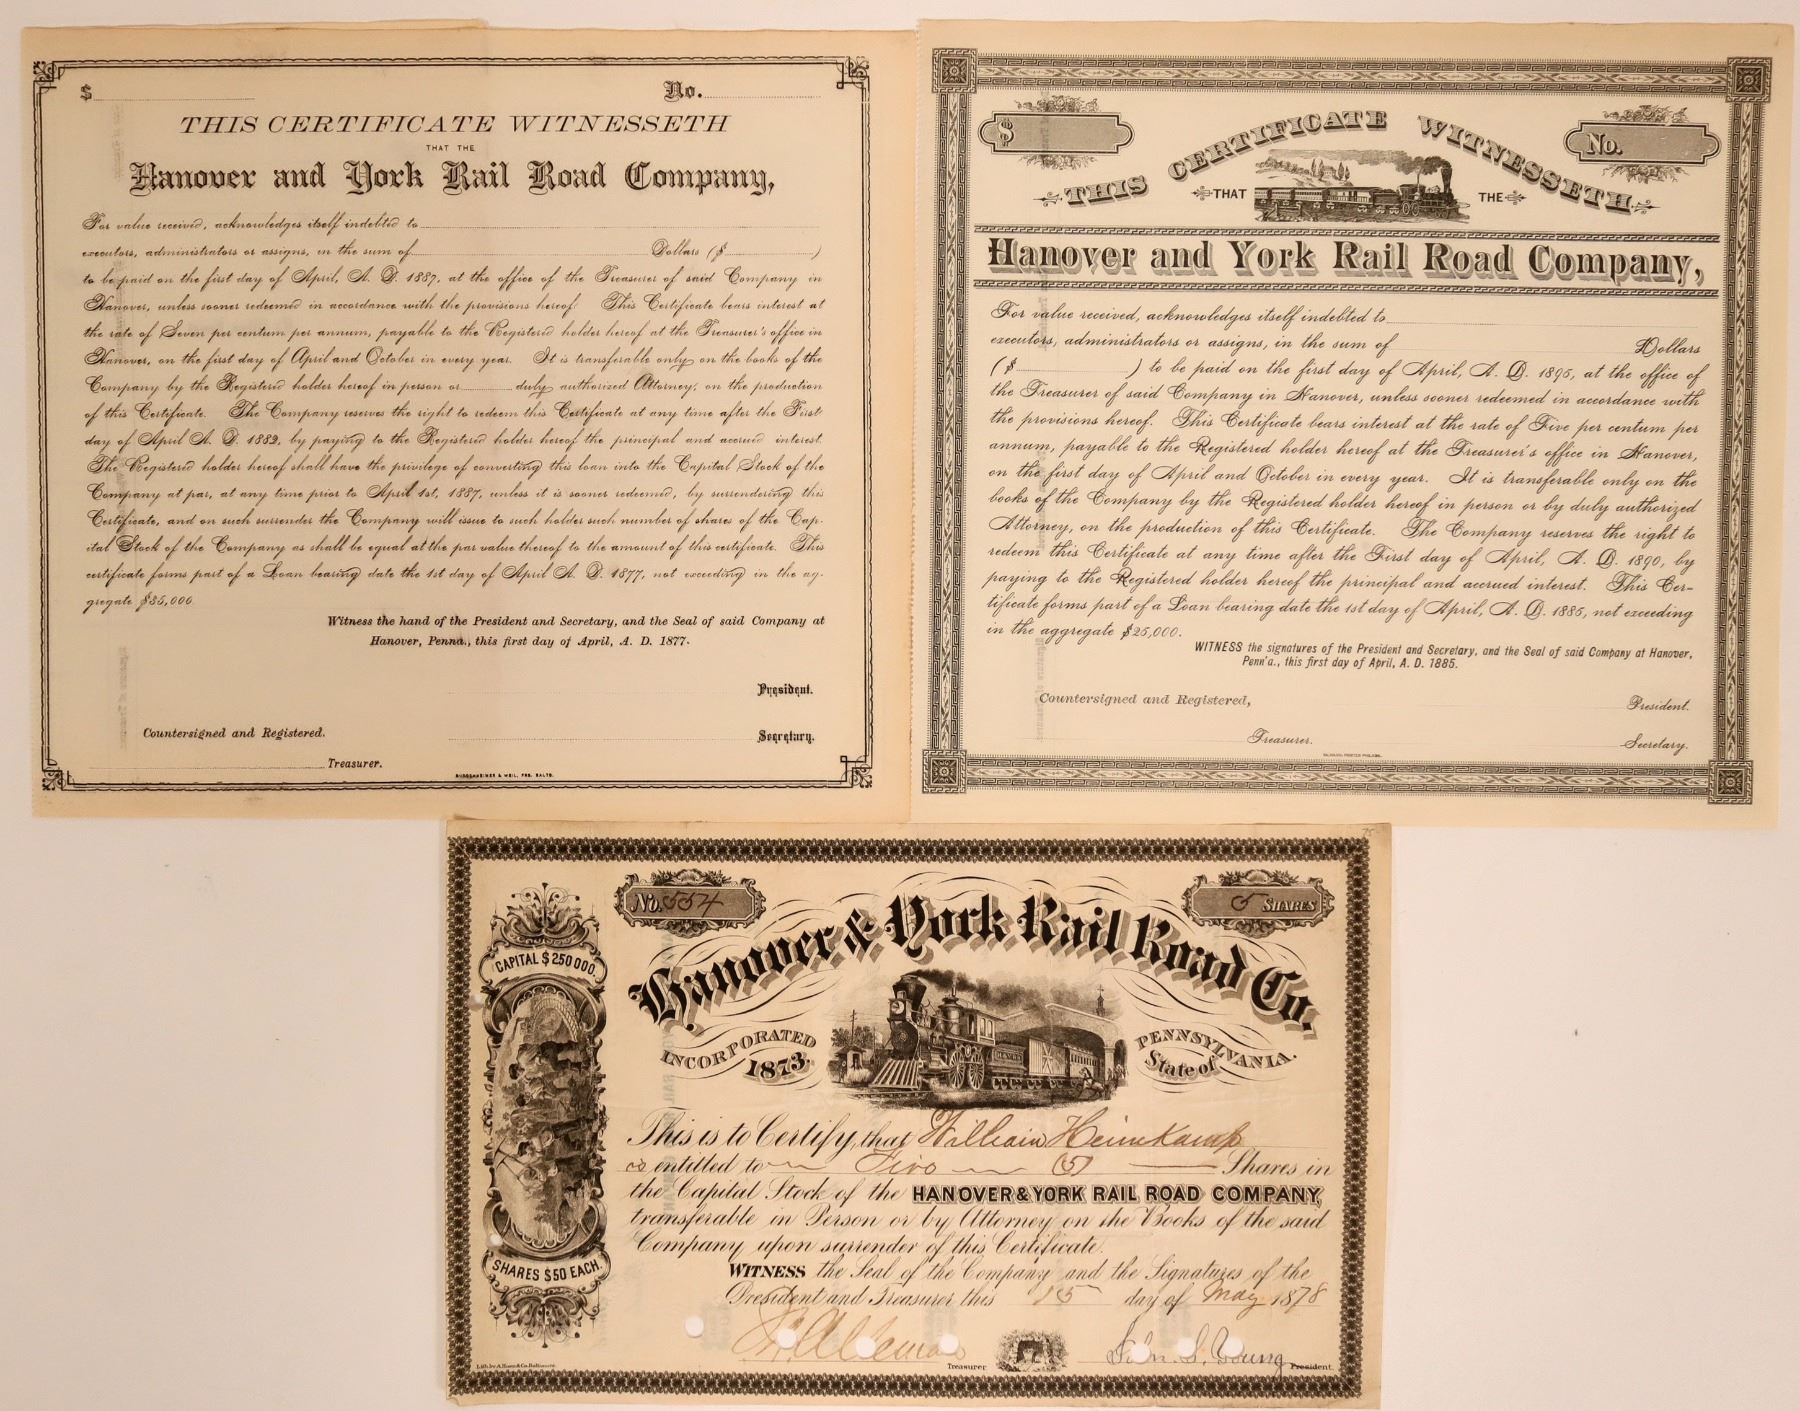 $ No.
THIS CERTIFICATE WITNESSETH
THAT THE
Hanover and York Rail Road Company,
For value received, acknowledges itself indebted to
executors, administrators or assigns, in the sum of Dollars ($ )
to be paid on the first day of April, A. D. 1887, at the office of the Treasurer of said Company in
Hanover, unless sooner redeemed in accordance with the provisions hereof. This Certificate bears interest at
the rate of Seven per centum per annum, payable to the Registered holder hereof at the Treasurer's office in
Hanover, on the first day of April and October in every year. It is transferable only on the books of the
Company by the Registered holder hereof in person or duly authorized Attorney, on the production
of this Certificate. The Company reserves the right to redeem this Certificate at any time after the First
day of April A. D. 1882, by paying to the Registered holder hereof the principal and accrued interest.
The Registered holder hereof shall have the privilege of converting this loan into the Capital Stock of the
Company at par, at any time prior to April 1st, 1887, unless it is sooner redeemed, by surrendering this
Certificate, and on such surrender the Company will issue to such holder such number of shares of the Cap-
ital Stock of the Company as shall be equal at the par value thereof to the amount of this certificate. This
certificate forms part of a Loan bearing date the 1st day of April A. D. 1877, not exceeding in the ag-
gregate $85,000
Witness the hand of the President and Secretary, and the Seal of said Company at
Hanover, Penna., this first day of April, A. D. 1877.
President.
Countersigned and Registered. Secretary.
Treasurer.
$ No.
THIS CERTIFICATE WITNESSETH
THAT THE
Hanover and York Rail Road Company,
For value received, acknowledges itself indebted to
executors, administrators or assigns, in the sum of Dollars
($ ) to be paid on the first day of April, A. D. 1895, at the office of
the Treasurer of said Company in Hanover, unless sooner redeemed in accordance with
the provisions hereof. This Certificate bears interest at the rate of Five per centum per
annum, payable to the Registered holder hereof at the Treasurer's office in Hanover,
on the first day of April and October in every year. It is transferable only on the
books of the Company by the Registered holder hereof in person or by duly authorized
Attorney, on the production of this Certificate. The Company reserves the right to
redeem this Certificate at any time after the First day of April, A. D. 1890, by
paying to the Registered holder hereof the principal and accrued interest. This Cer-
tificate forms part of a Loan bearing date the 1st day of April, A. D. 1885, not exceeding
in the aggregate $25,000.
WITNESS the signatures of the President and Secretary, and the Seal of said Company at Hanover,
Penn'a., this first day of April, A. D. 1885.
Countersigned and Registered, President.
Treasurer. Secretary.
75
No. 554 5 SHARES
CAPITAL $250000.
Hanover & York Rail Road Co.
INCORPORATED 1873.
State of PENNSYLVANIA.
This is to Certify, that William Heimkamp
is entitled to Five (5) Shares in
the Capital Stock of the HANOVER & YORK RAIL ROAD COMPANY,
transferable in Person or by Attorney on the Books of the said
Company upon surrender of this Certificate.
SHARES $50 EACH.
WITNESS the Seal of the Company and the Signatures of the
President and Treasurer this 15 day of May 1878
Treasurer John S. Young President.
Lith. by A. Hoen & Co. Baltimore